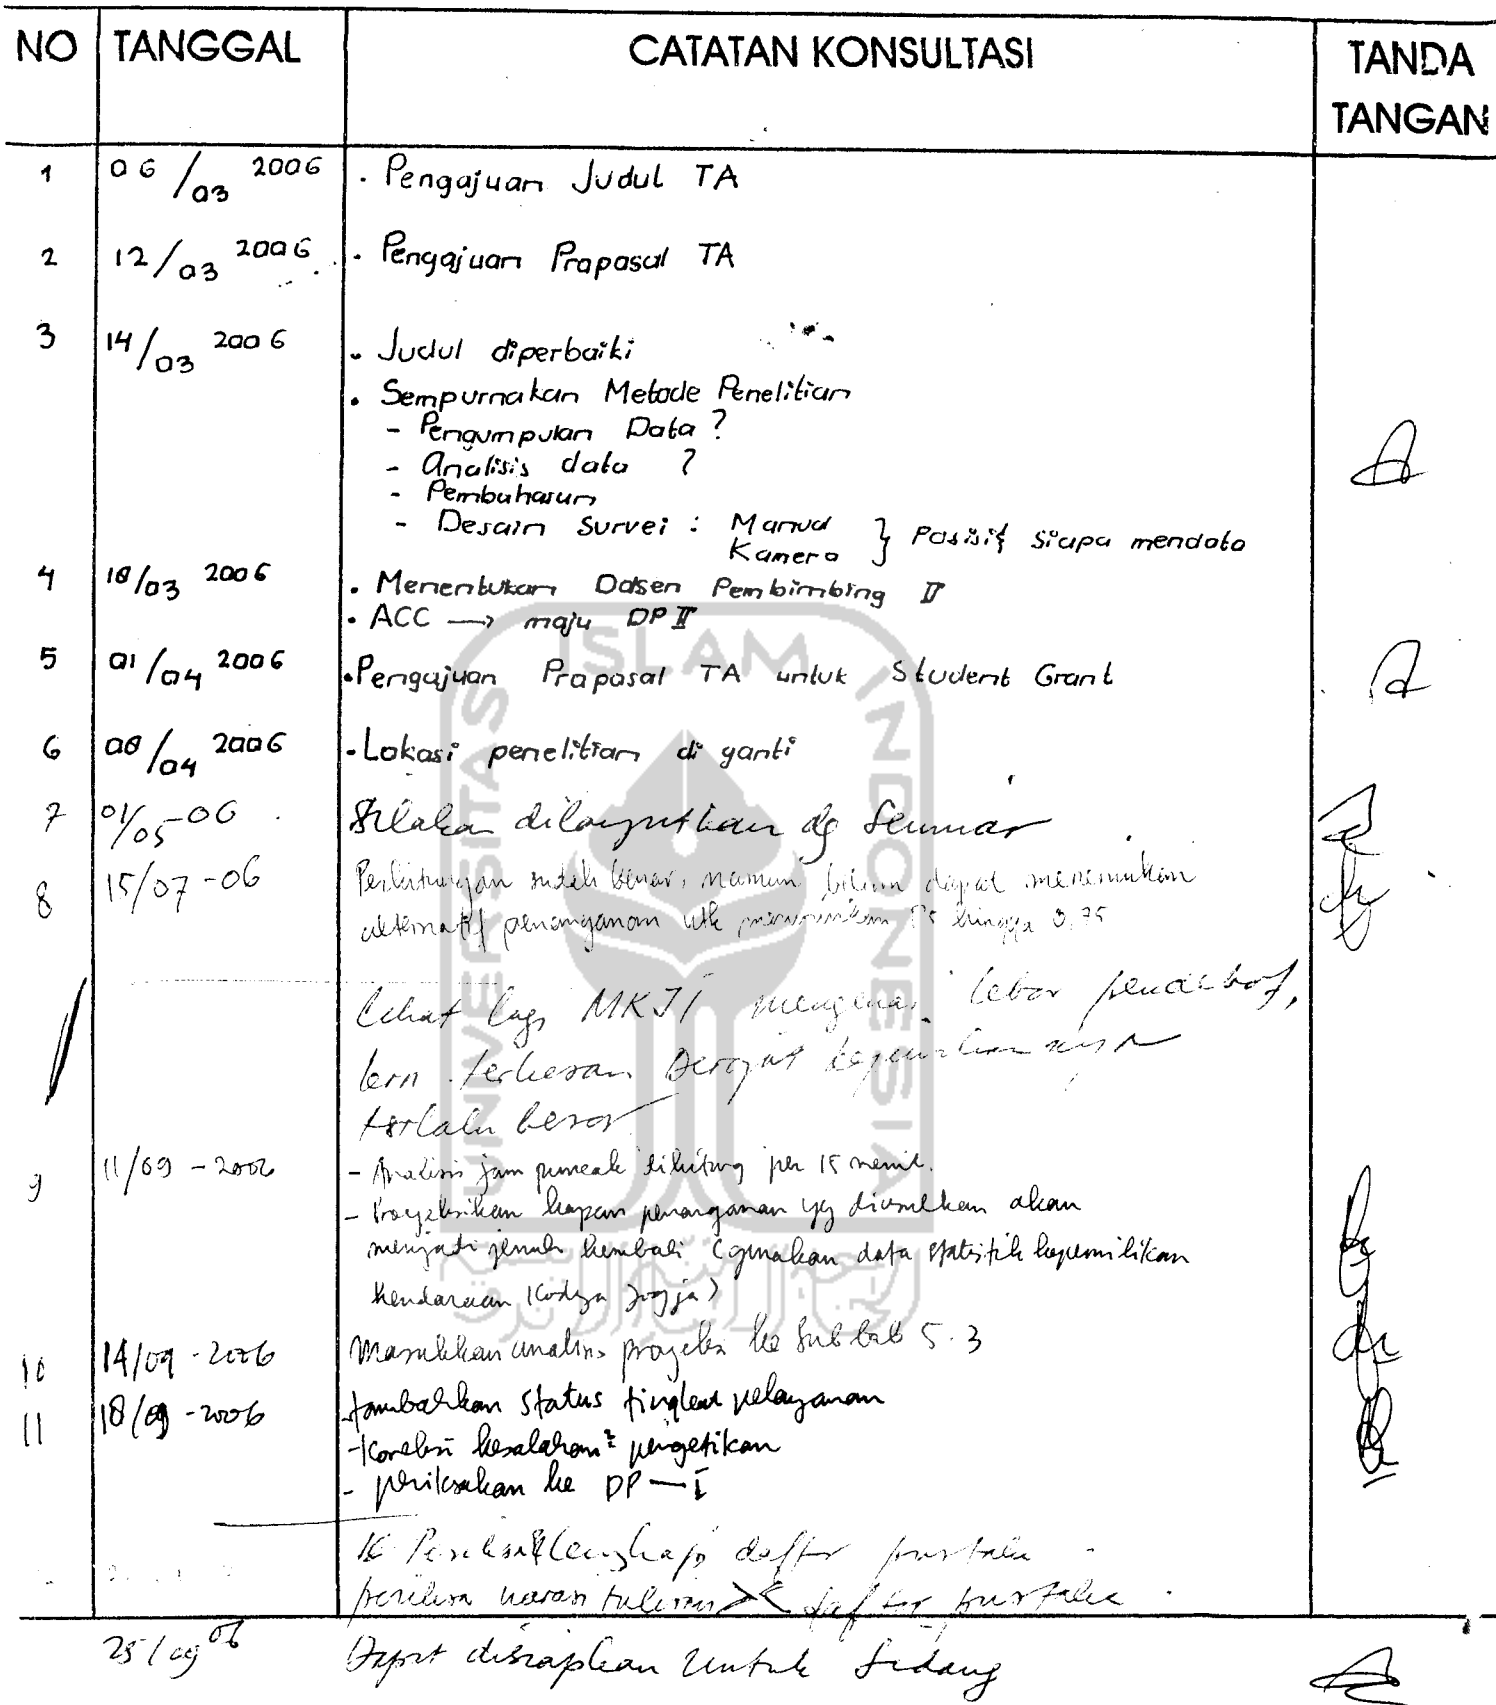 NO TANGGAL CATATAN KONSULTASI TANDA TANGAN
1 06/03 2006 . Pengajuan Judul TA
2 12/03 2006 . Pengajuan Proposal TA
3 14/03 2006 . Judul diperbaiki
. Sempurnakan Metode Penelitian
- Pengumpulan Data ?
- Analisis data ?
- Pembahasan
- Desain Survei : Manual
Kamera } Posisi siapa mendata
4 18/03 2006 . Menentukan Dosen Pembimbing II
. ACC → maju DP II
5 01/04 2006 . Pengajuan Proposal TA untuk Student Grant
6 08/04 2006 . Lokasi penelitian di ganti
7 01/05-06 Silakan dilanjutkan dg Seminar
8 15/07-06 Perhitungan sudah benar, namun belum dapat menemukan
alternatif penanganan utk menurunkan DS hingga 0,75
Lihat lagi MKJI mengenai lebar pendekat,
krn terkesan Derajat kejenuhannya
terlalu besar
9 11/09-2006 - Analisis jam puncak dihitung per 15 menit.
- Proyeksikan kapan penanganan yg diusulkan akan
menjadi jenuh kembali (gunakan data statistik kepemilikan
kendaraan Kodya Jogja)
10 14/09-2006 Masukkan analisis proyeksi ke Sub bab 5.3
11 18/09-2006 - tambahkan status tingkat pelayanan
- Koreksi kesalahan² pengetikan
- periksakan ke DP-I
lengkapi daftar pustaka
periksa narasi tulisan >< daftar pustaka
25/09 06 Dapat disiapkan untuk Sidang
UNIVERSITAS ISLAM INDONESIA